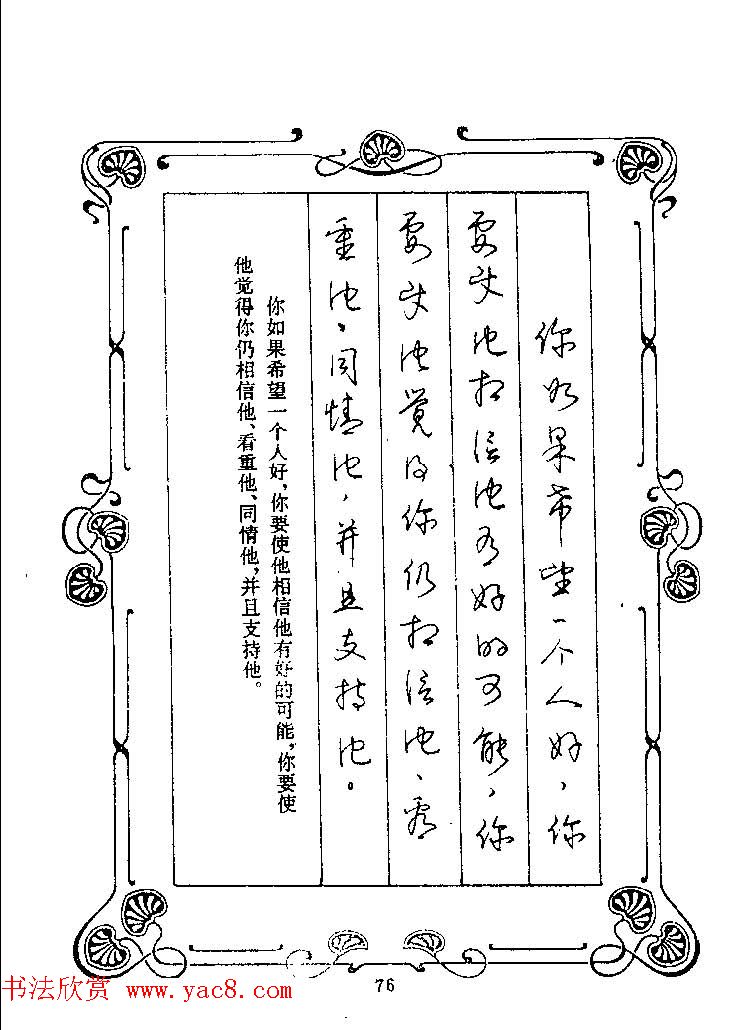 你如果希望一个人好，你
要使他相信他有好的可能，你
要使他觉得你仍相信他、看
重他、同情他，并且支持他。
你如果希望一个人好，你要使他相信他有好的可能，你要使
他觉得你仍相信他、看重他、同情他，并且支持他。
76
书法欣赏 www.yac8.com